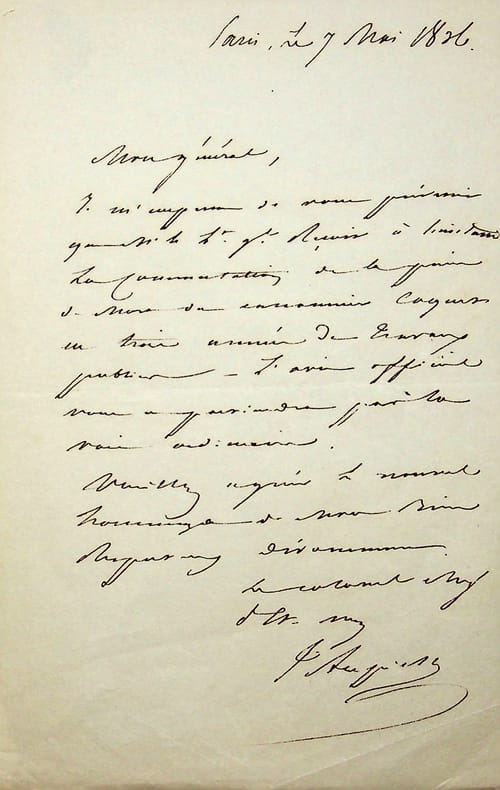 Paris, le 7 Mai 1836.
Mon général,
Je m'empresse de vous prévenir
que M. le Lt. gl. Reçoit à l'instant
la Commutation de la peine
de Mort du canonnier Coquet
en trois années de Travaux
publics — L'avis officiel
vous en parviendra par la
voie ordinaire.
Veuillez agréer le nouvel
hommage de Mon Bien
Respectueux dévouement
Le colonel chef
d'Et. mj
J. Aupick